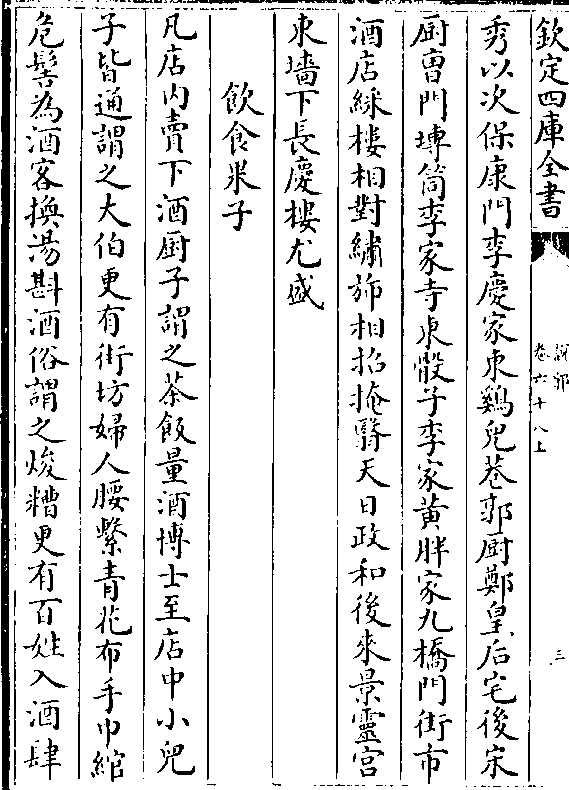 欽定四庫全書
說郛
卷六十八上
三
秀以次保康門李慶家東鷄兒巷郭厨鄭皇后宅後宋
厨曹門塼筒李家寺東骰子李家黄胖家九橋門街市
酒店綵樓相對繡斾相招掩翳天日政和後來景靈宫
東墻下長慶樓尤盛
飲食果子
凡店内賣下酒厨子謂之茶飯量酒博士至店中小兒
子皆通謂之大伯更有街坊婦人腰繫青花布手巾綰
危髻為酒客換湯斟酒俗謂之焌糟更有百姓入酒肆